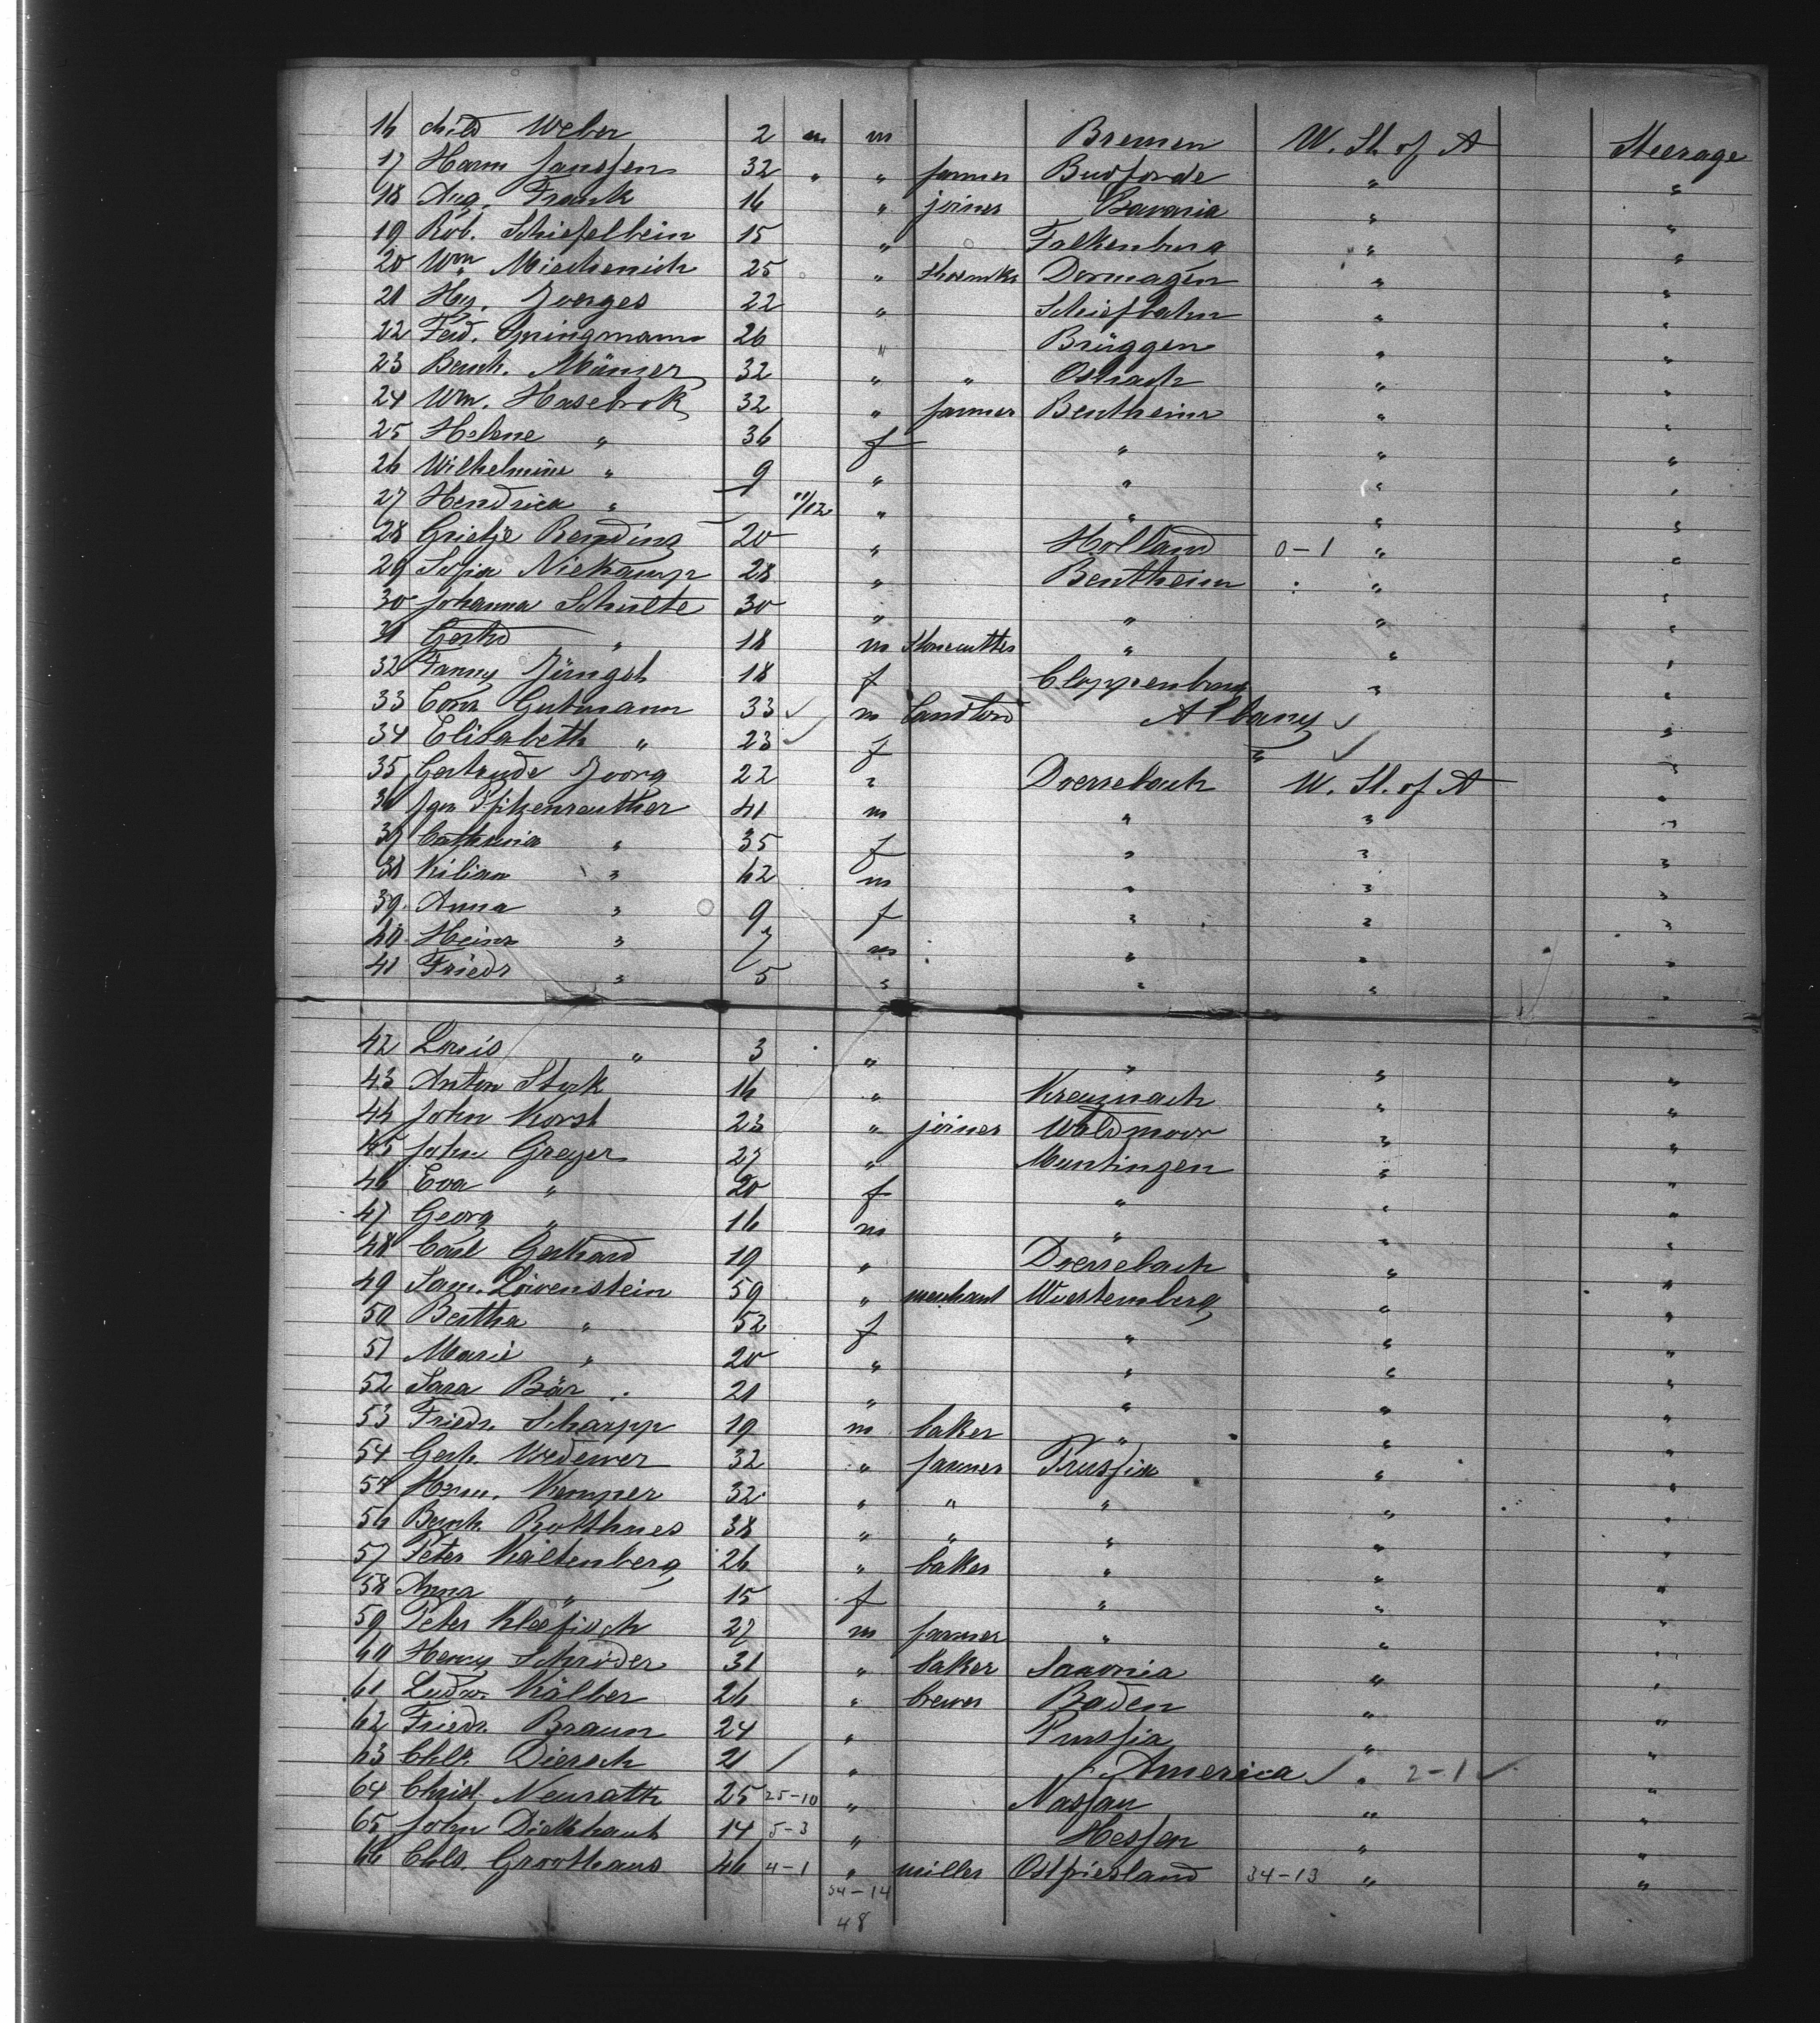 16 child Weber 2 m m Bremen U. St. of A Steerage
17 Harm Janssen 32 " " farmer Budforde " "
18 Aug. Frank 16 " joiner Bavaria " "
19 Rob. Schiefelbein 15 " Falkenburg " "
20 Wm. Mischenich 25 " shoemkr Dormagen " "
21 Hy. Joerges 22 " Schiefbahn " "
22 Ferd. Springmann 26 " Brüggen " "
23 Bernh. Mänzer 32 " " Ostrach " "
24 Wm. Hasebrok 32 " farmer Bentheim " "
25 Helene " 36 f " " "
26 Wilhelmine " 9 " " " "
27 Hendrica " 11/12 " " " "
28 Grietje Bending 20 " Holland 0-1 " "
29 Sofia Niekamp 28 " Bentheim " "
30 Johanna Schulte 30 " " " "
31 Gerhd " 18 m Stonecutter " " "
32 Fanny Jüngst 18 f Cloppenburg " "
33 Conr Gutmann 33 m Landlord Albany "
34 Elisabeth " 23 f " "
35 Gertrude Joorg 22 " Doerrebach U. St. of A "
36 Jgn Pfitzenreuther 41 m " " "
37 Catharina " 35 f " " "
38 Kilian " 62 m " " "
39 Anna " 9 f " " "
40 Heinr " 7 m " " "
41 Friedr " 5 " " " "
42 Louis " 3 " " " "
43 Anton Stork 16 " Kreuznach " "
44 John Korst 23 " joiner Waldmoor " "
45 John Greger 27 " Muntingen " "
46 Eva " 20 f " " "
47 Georg " 16 m " " "
48 Carl Gerhard 19 " Doerrebach " "
49 Sam. Löwenstein 59 " merchant Wuertemberg " "
50 Bertha " 52 f " " "
51 Marie " 20 " " " "
52 Sara Bär 21 " " " "
53 Friedr. Scharpp 19 m baker " " "
54 Gerh. Wedewer 32 " farmer Prussia " "
54 Herm. Kemper 32 " " " " "
56 Bernh. Rotthues 38 " " " " "
57 Peter Kaltenberg 26 " baker " " "
58 Anna " 15 f " " "
59 Peter Kleefisch 27 m farmer " " "
60 Henry Schröder 31 " baker Saxonia " "
61 Ludw. Kälber 26 " brewer Baden " "
62 Friedr. Braun 24 " Prussia " "
63 Chls. Diersch 21 " America " 2-1 "
64 Christ. Neurath 25 25-10 " Nassau " "
65 John Dickhaut 14 5-3 " Hessen " "
66 Chls. Groothaus 46 4-1 " miller Ostfriesland 34-13 " "
34-14
48